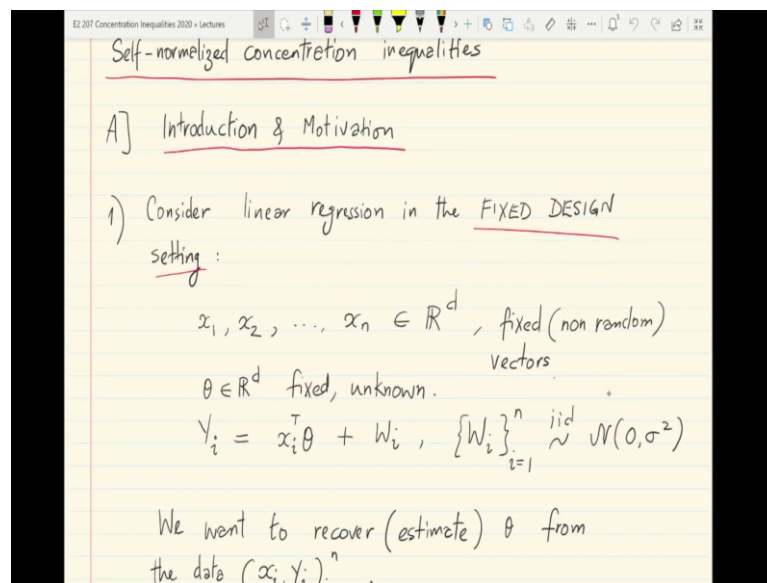 E2 207 Concentration Inequalities 2020 » Lectures
Self-normalized concentration inequalities
A] Introduction & Motivation
1) Consider linear regression in the FIXED DESIGN
setting :
x₁, x₂, ..., xₙ ∈ ℝᵈ, fixed (non random)
vectors
θ ∈ ℝᵈ fixed, unknown.
Yᵢ = xᵢᵀθ + Wᵢ , {Wᵢ}ⁿᵢ₌₁ iid ~ N(0,σ²)
We want to recover (estimate) θ from
the data (xᵢ, Yᵢ)ⁿ